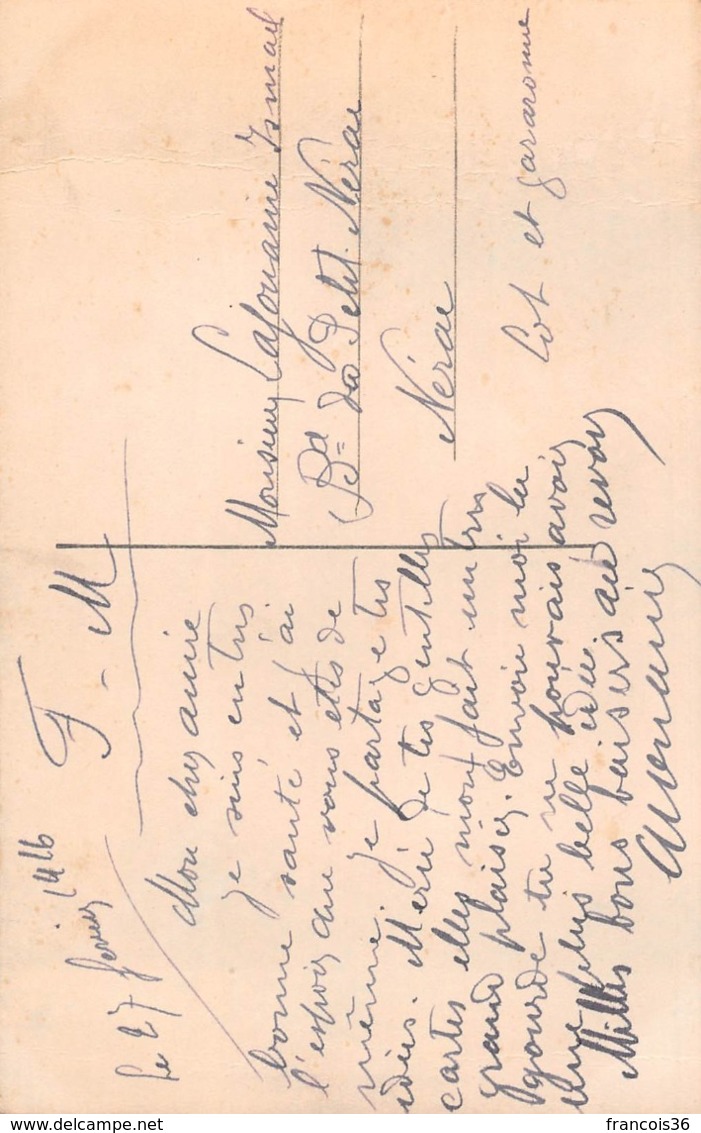 Le 27 fevrier 1916
F - M
Mon cher amie
je suis en tres
bonne santé et j'ai
l'espoir que vous etes de
même. Je partage tes
idées. Merci de tes gentilles
cartes elles m'ont fait un tres
grand plaisir. Envoie moi la
gourde tu ne pouvais avoir
une plus belle idée
Milles bons baisers au revoir
Monsieur Lafouanie Ismael
Bd du Petit Nérac
Nérac
Lot et gararonne
francois36